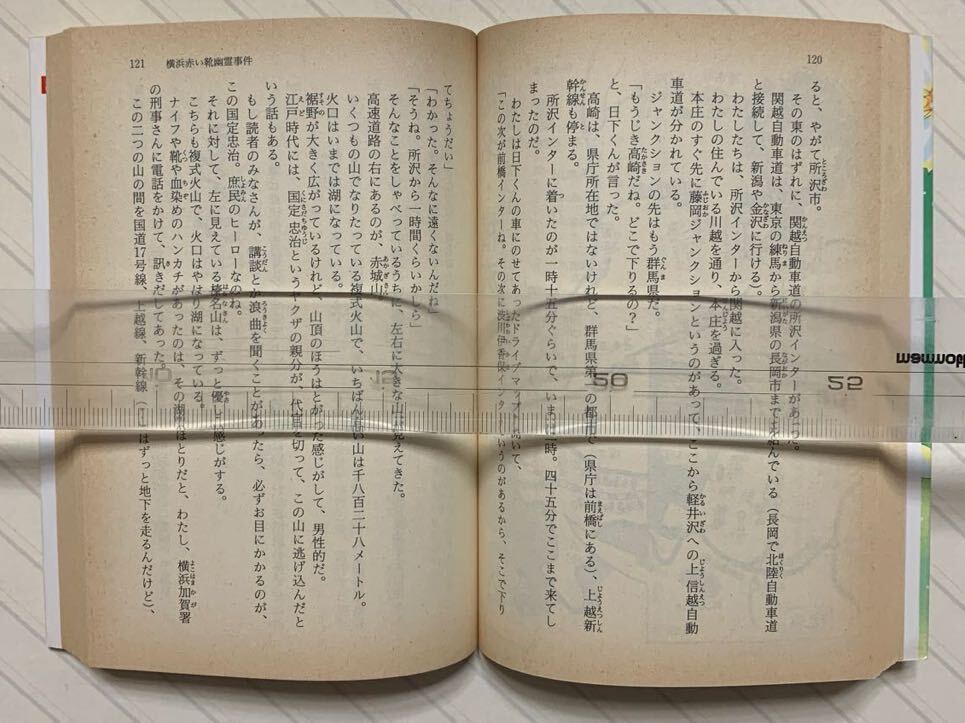 120
ると、やがて所沢市。
その東のはずれに、関越自動車道の所沢インターがあった。
関越自動車道は、東京の練馬から新潟県の長岡市までを結んでいる（長岡で北陸自動車道
と接続して、新潟や金沢に行ける）。
わたしたちは、所沢インターから関越に入った。
わたしの住んでいる川越を通り、本庄を過ぎる。
本庄のすぐ先に藤岡ジャンクションというのがあって、ここから軽井沢への上信越自動
車道が分かれている。
ジャンクションの先はもう群馬県だ。
「もうじき高崎だね。どこで下りるの？」
と、日下くんが言った。
高崎は、県庁所在地ではないけれど、群馬県第一の都市で（県庁は前橋にある）、上越新
幹線も停まる。
所沢インターに着いたのが一時十五分ぐらいで、いまは二時。四十五分でここまで来てし
まったのだ。
わたしは日下くんの車にのせてあったドライブマップを開いて、
「この次が前橋インターね。その次に渋川伊香保インターというのがあるから、そこで下り
121 横浜赤い靴幽霊事件
てちょうだい」
「わかった。そんなに遠くないんだね」
「そうね。所沢から一時間くらいかしら」
そんなことをしゃべっているうちに、左右に大きな山が見えてきた。
高速道路の右にあるのが、赤城山。
いくつもの山でなりたっている複式火山で、いちばん高い山は千八百二十八メートル。
火口はいまでは湖になっている。
裾野が大きく広がっているけれど、山頂のほうはとがった感じがして、男性的だ。
江戸時代には、国定忠治というヤクザの親分が、代官を切って、この山に逃げ込んだと
いう話もある。
もし読者のみなさんが、講談とか浪曲を聞くことがあったら、必ずお目にかかるのが、
この国定忠治。庶民のヒーローなのね。
それに対して、左に見えている榛名山は、ずっと優しい感じがする。
こちらも複式火山で、火口はやはり湖になっている。
ナイフや靴や血染めのハンカチがあったのは、その湖のほとりだと、わたし、横浜加賀署
の刑事さんに電話をかけて、訊きだしてあった。
この二つの山の間を国道17号線、上越線、新幹線（はずっと地下を走るんだけど）、
50
52